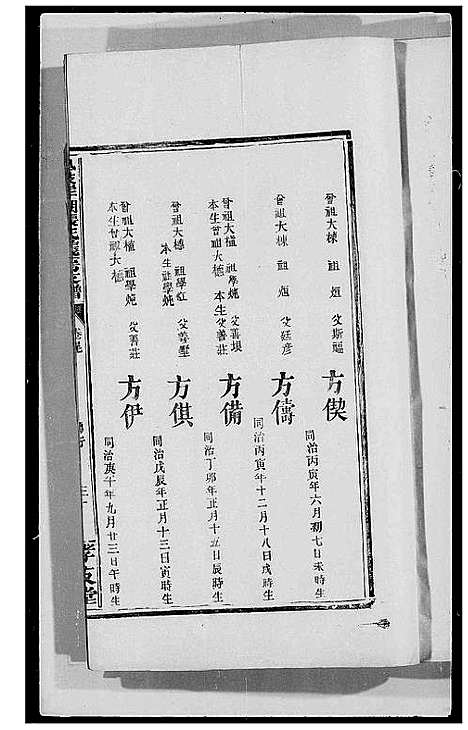 曾祖大棟 祖烜 父斯韞
方偰
同治丙寅年六月初七日未時生
曾祖大棟 祖烜 父廷彥
方儔
同治丙寅年十二月十八日戌時生
曾祖大橞 祖學炖 父善垻
本生曾祖大橞 本生父善莊
方備
同治丁卯年正月十五日辰時生
曾祖大櫖 祖學 父善墅
本生祖學炖
方倛
同治戊辰年正月十三日寅時生
曾祖大櫖 祖學炖 父善莊
本生曾祖大橞
方伊
同治庚午年九月廿三日午時生
孝友堂